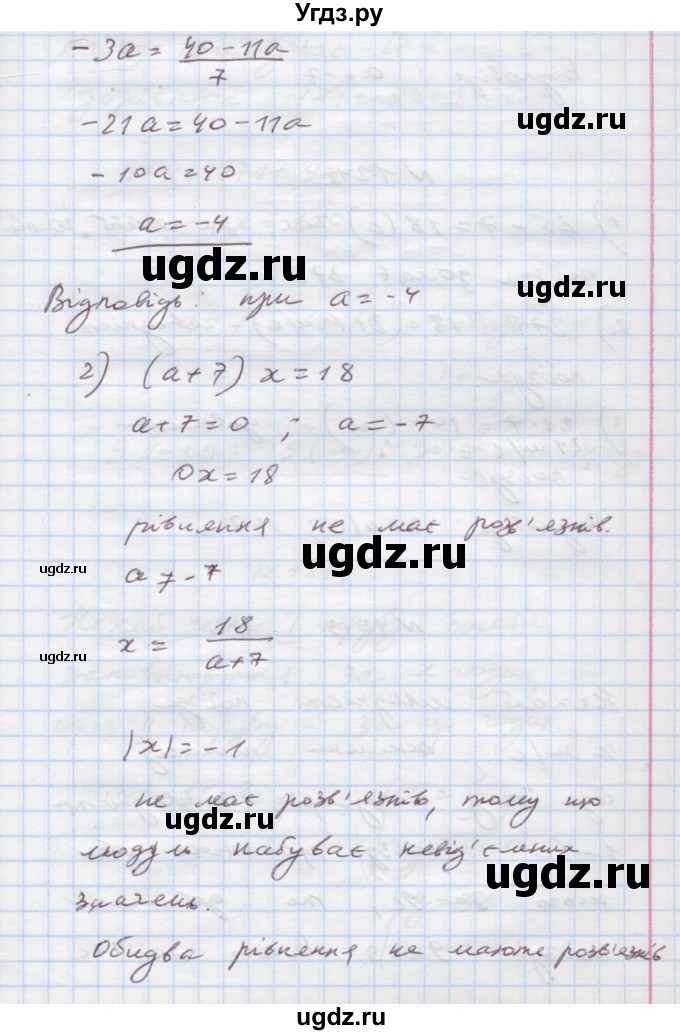 Угдз.ру
-3a = (40 - 11a)/7
-21a = 40 - 11a
ugdz.ru
-10a = 40
a = -4
ugdz.ru
Відповідь: при a = -4
2) (a+7) x = 18
ugdz.ru
a+7 = 0 ; a = -7
0x = 18
рівняння не має розв'язків.
ugdz.ru
ugdz.ru
a ≠ -7
x = 18/(a+7)
ugdz.ru
|x| = -1
не має розв'язків, тому що
ugdz.ru
модуль набуває невід'ємних
ugdz.ru
значень.
Обидва рівняння не мають розв'язків
ugdz.ru